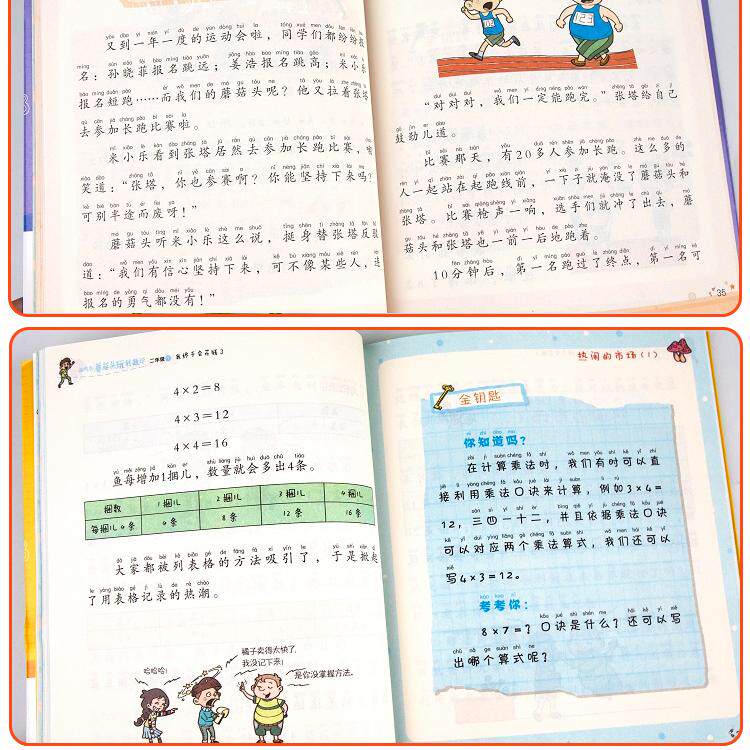 又到一年一度的运动会啦，同学们都纷纷报
名：孙晓菲报名跳远；姜浩报名跳高；米小乐
报名短跑……而我们的蘑菇头呢？他又拉着张塔
去参加长跑比赛啦。
米小乐看到张塔居然去参加长跑比赛，
笑道：“张塔，你也参赛啊？你能坚持下来吗？
可别半途而废呀！”
蘑菇头听米小乐这么说，挺身替张塔反
道：“我们有信心坚持下来，可不像某些人，连
报名的勇气都没有！”
“对对对，我们一定能跑完。”张塔给自己
鼓劲儿道。
比赛那天，有20多人参加长跑。这么多的
人一起站在起跑线前，一下子就淹没了蘑菇头和
张塔。比赛枪声一响，选手们就冲了出去，蘑
菇头和张塔也一前一后地跑着。
10分钟后，第一名跑过了终点，第一名可
35
二年级 我终于会花钱了
4×2＝8
4×3＝12
4×4＝16
鱼每增加1捆儿，数量就会多出4条。
捆数 1捆儿 2捆儿 3捆儿 4捆儿
每捆儿4条 4条 8条 12条 16条
大家都被列表格的方法吸引了，于是掀起
了用表格记录的热潮。
哈哈哈！
橘子卖得太快了，
我没记下来！
是你没掌握方法。
热闹的市场（1）
金钥匙
你知道吗？
在计算乘法时，我们有时可以直
接利用乘法口诀来计算，例如3×4＝
12，三四一十二，并且依据乘法口诀
可以对应两个乘法算式，我们还可以
写4×3＝12。
考考你：
8×7＝？口诀是什么？还可以写
出哪个算式呢？